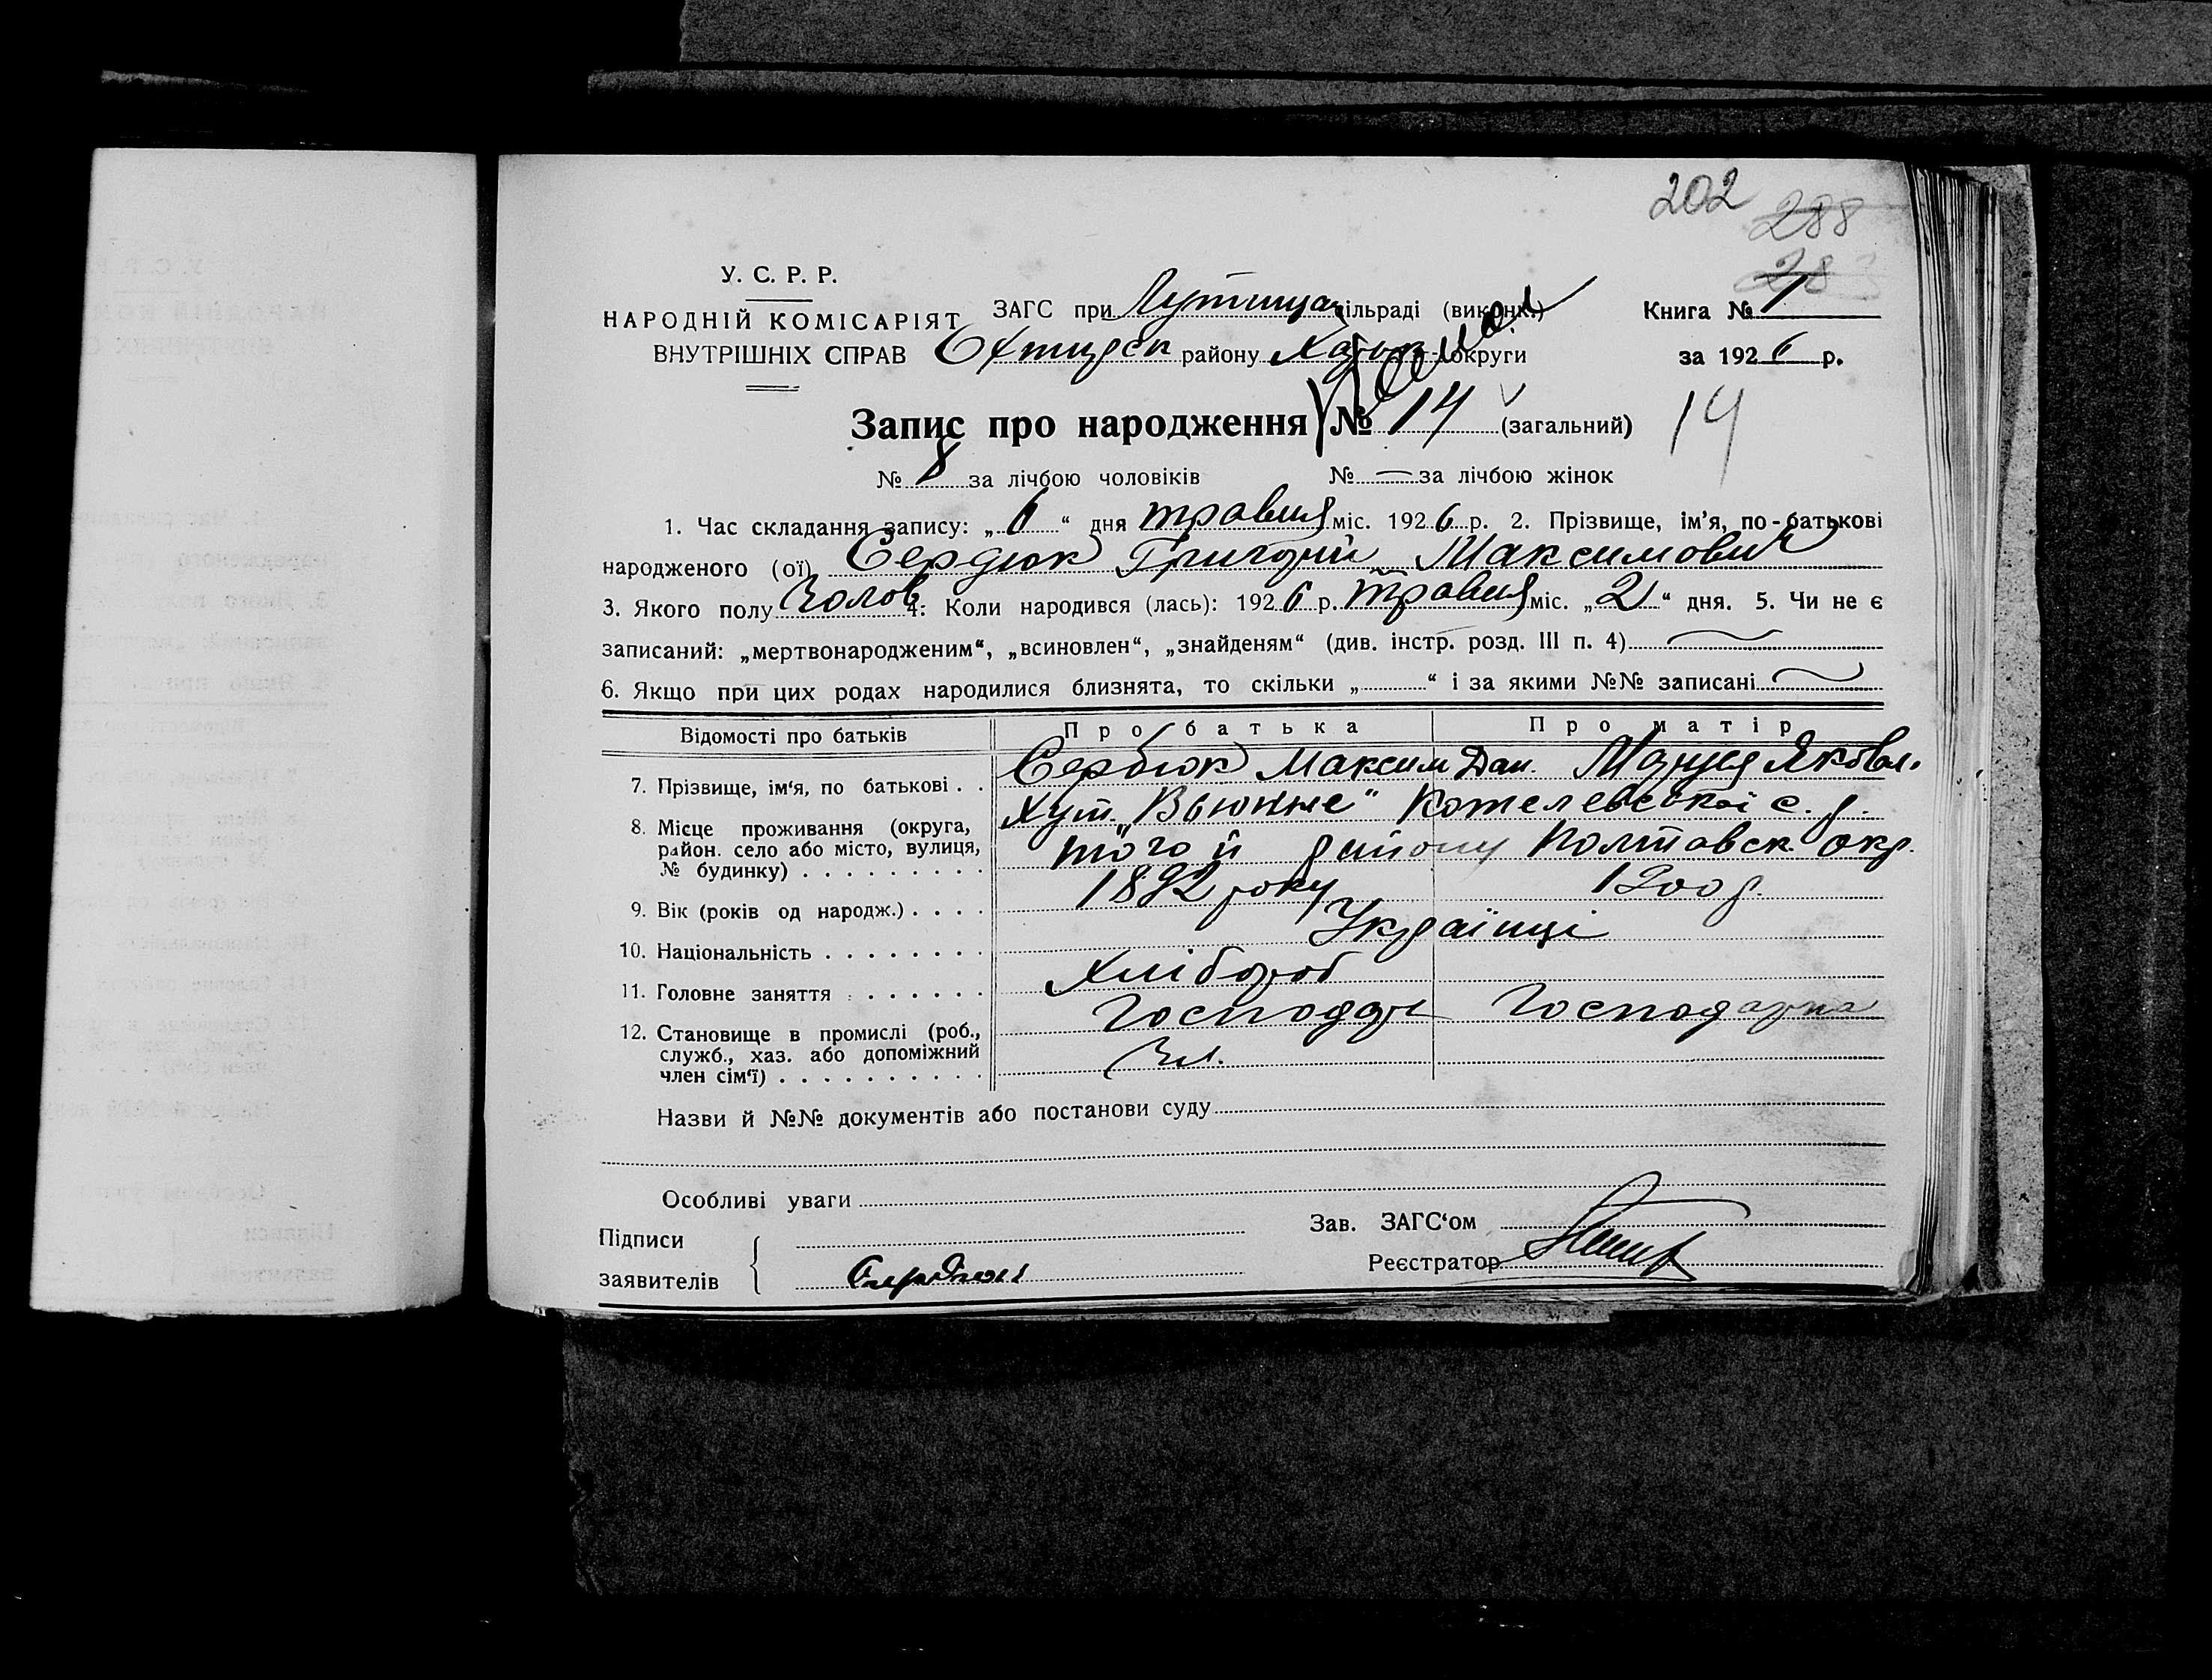 202
288
283
У. С. Р. Р.
НАРОДНІЙ КОМІСАРІЯТ
ВНУТРІШНІХ СПРАВ
ЗАГС при Лутища сільраді (виконк.)
Охтирск району Харк. округи
Книга № 1
за 1926 р.
Запис про народження № 14 (загальний) 14
№ 8 за лічбою чоловіків № — за лічбою жінок
1. Час складання запису: „6“ дня травня міс. 1926 р. 2. Прізвище, ім’я, по-батькові
народженого (ої) Сердюк Григорій Максимович
3. Якого полу чолов 4: Коли народився (лась): 1926 р. травня міс. „2“ дня. 5. Чи не є
записаний: „мертвонародженим“, „всиновлен“, „знайденям“ (див. інстр. розд. III п. 4)
6. Якщо при цих родах народилися близнята, то скільки „ “ і за якими №№ записані
Відомості про батьків Про батька Про матір
7. Прізвище, ім‘я, по батькові . . Сердюк Максим Дан. Яковл.
8. Місце проживання (округа, Хут. „Вьюнне“ Котелевської с. р.
район. село або місто, вулиця, того й району Полтавск окр.
№ будинку)
9. Вік (років од народж.) 1892 року 1900 р.
10. Національність Українці
11. Головне заняття Хлібороб
12. Становище в промислі (роб., Господар Господарка
служб., хаз. або допоміжний Чл.
член сім‘ї)
Назви й №№ документів або постанови суду
Особливі уваги
Підписи
заявителів Сердюк
Зав. ЗАГС‘ом
Реєстратор